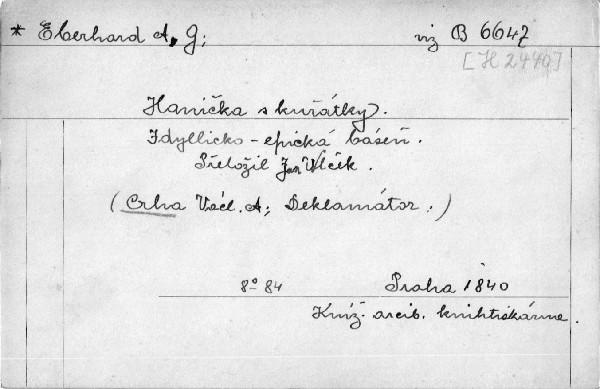 * Eberhard A. G.; viz B 6647
[H 2440]
Hanička s kuřátky.
Idyllicko-epická báseň.
Přeložil Jan Vlček.
(Crha Václ. A; Deklamátor.)
8° 84 Praha 1840
Kníž. arcib. knihtiskárna.